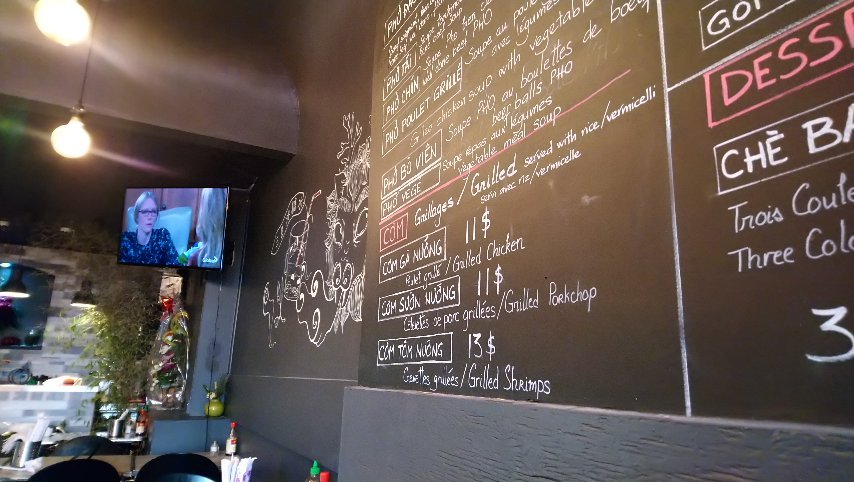 PHỞ TÁI
PHỞ CHÍN
and done beef PHO
PHỞ POULET GRILLÉ
Soupe au poulet
avec légumes
Grilled chicken soup with vegetable
PHỞ BÒ VIÊN
Soupe PHO au boulettes de boeuf
beef balls PHO
PHỞ VEGE
Soupe repas aux légumes
vegetable meal soup
CƠM
Grillages/Grilled served with rice/vermicelli
servi avec riz/vermicelle
CƠM GÀ NƯỚNG 11$
Poulet grillé/Grilled Chicken
CƠM SƯỜN NƯỚNG 11$
Côtelettes de porc grillées/Grilled Porkchop
CƠM TÔM NƯỚNG 13$
Crevettes grillées/Grilled Shrimps
GỎI
DESS
CHÈ BA
Trois Coule
Three Colo
3